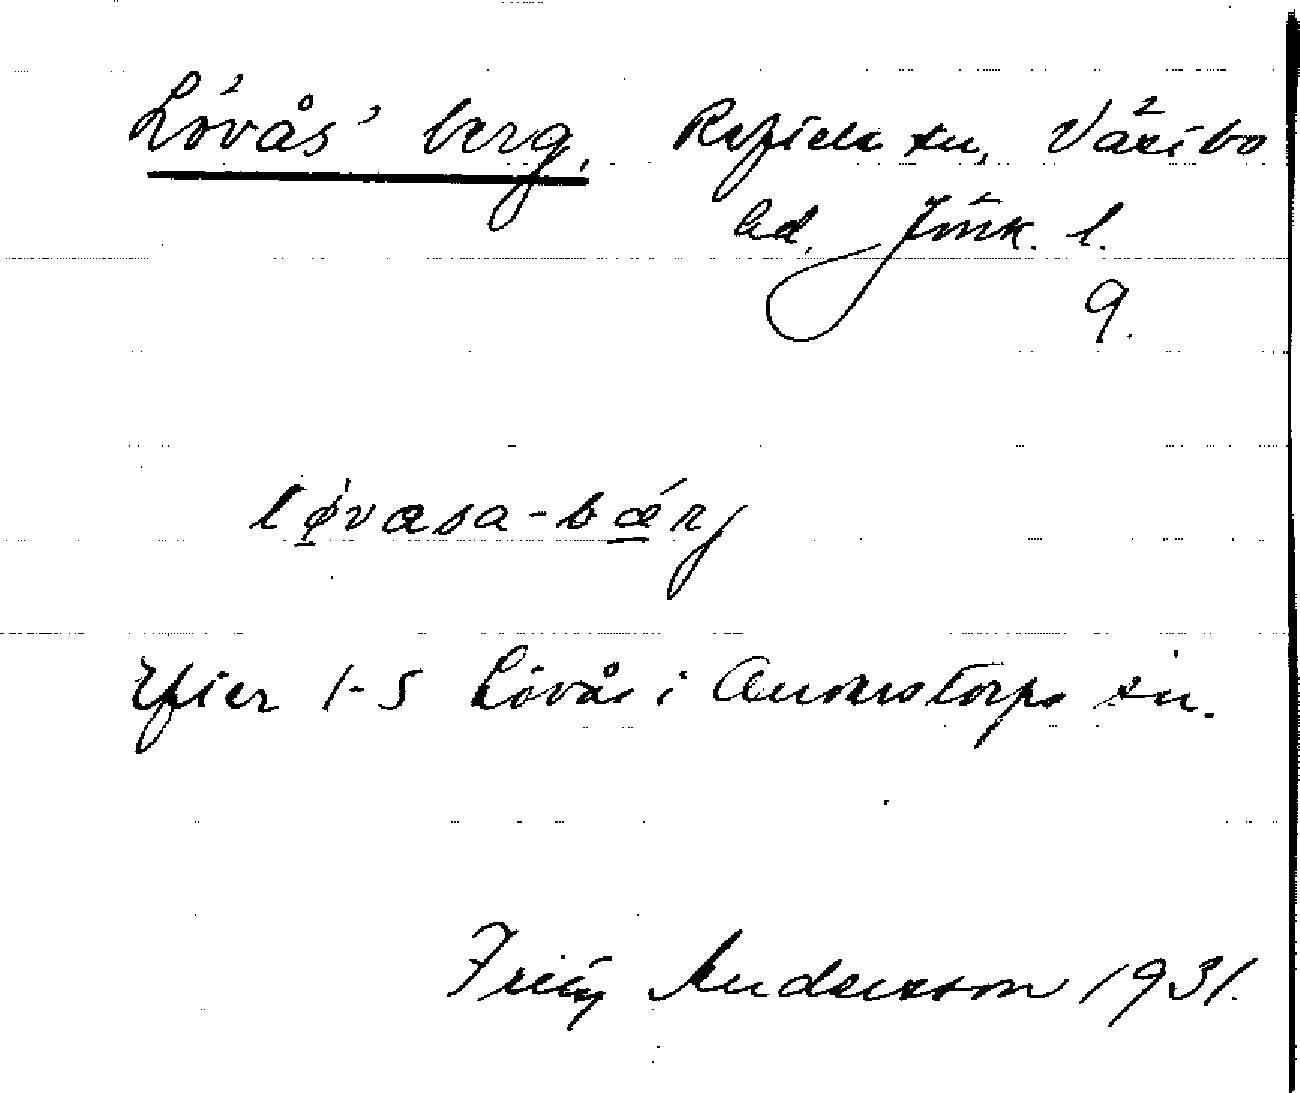 Lövås' berg, Reftele sn, Västbo
hd, Jönk. l.
9.
løvasa-bærj
Efter 1-5 Lövås i Anderstorps sn.
Fritz Andersson 1931.